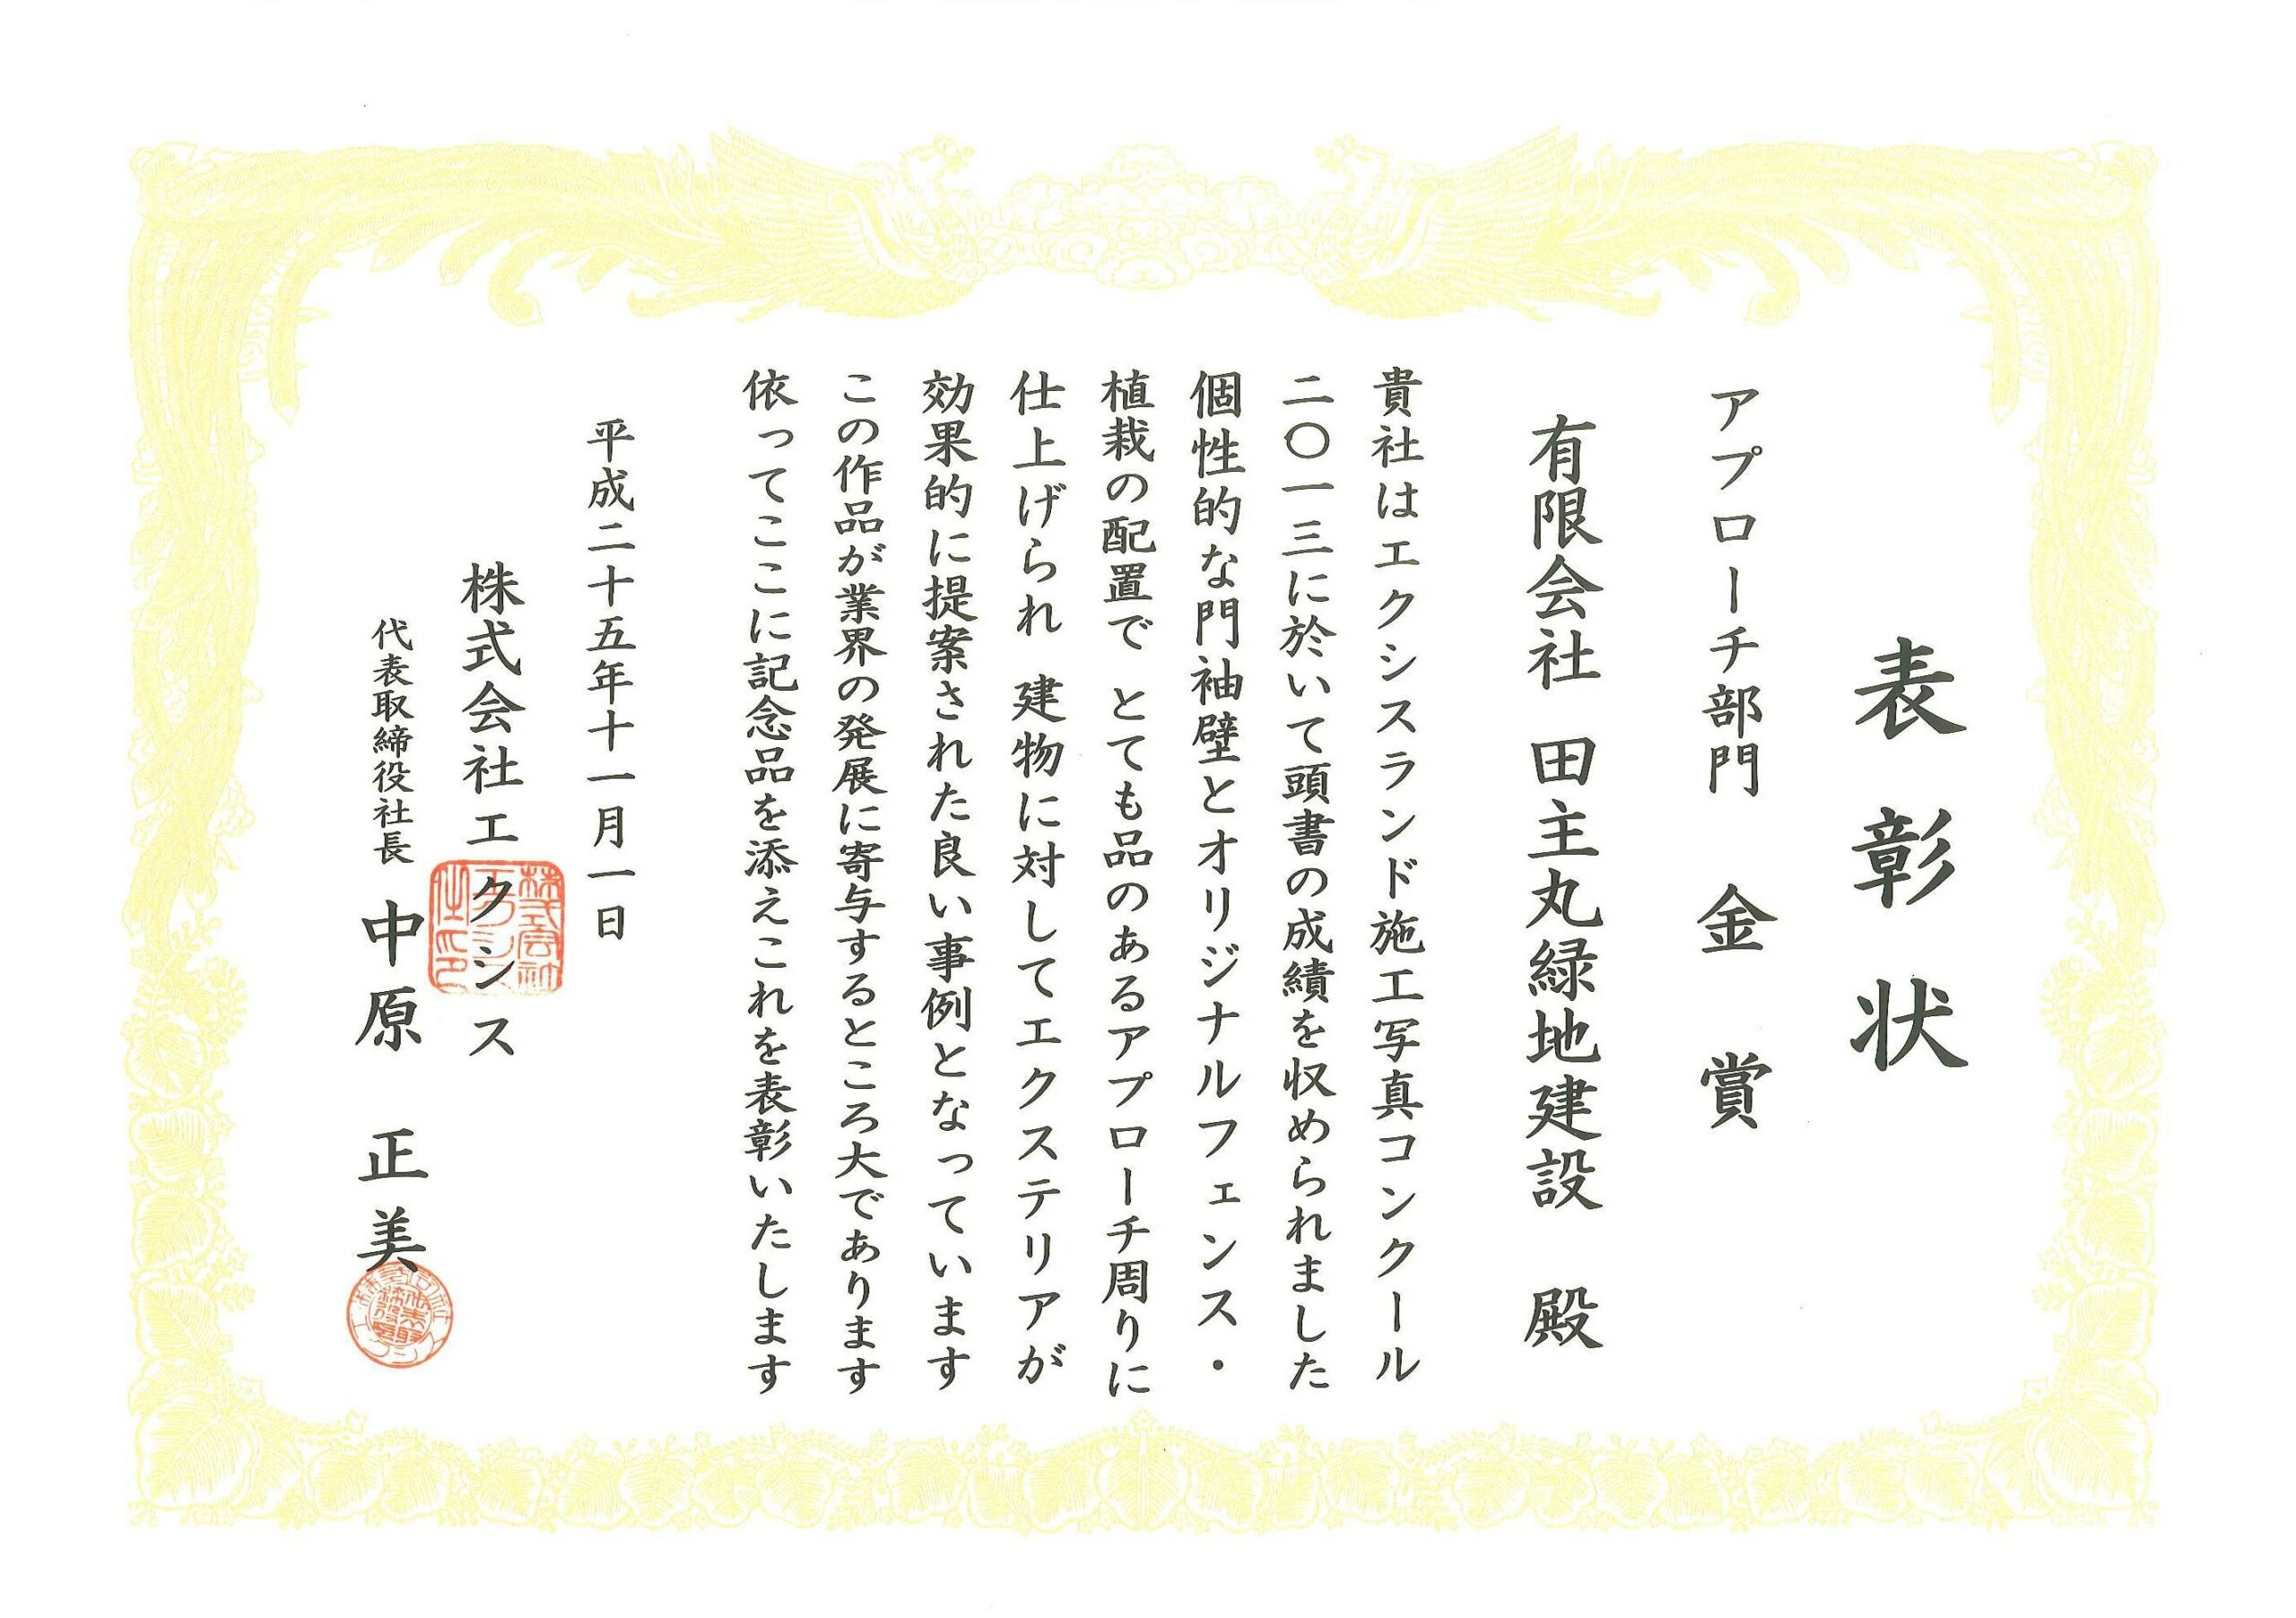 表彰状
アプローチ部門 金賞
有限会社 田主丸緑地建設 殿
貴社はエクシスランド施工写真コンクール
二〇一三に於いて頭書の成績を収められました
個性的な門袖壁とオリジナルフェンス・
植栽の配置で とても品のあるアプローチ周りに
仕上げられ 建物に対してエクステリアが
効果的に提案された良い事例となっています
この作品が業界の発展に寄与するところ大であります
依ってここに記念品を添えこれを表彰いたします
平成二十五年十一月一日
株式会社エクシス
代表取締役社長 中原 正美
株式会社エクシス社印